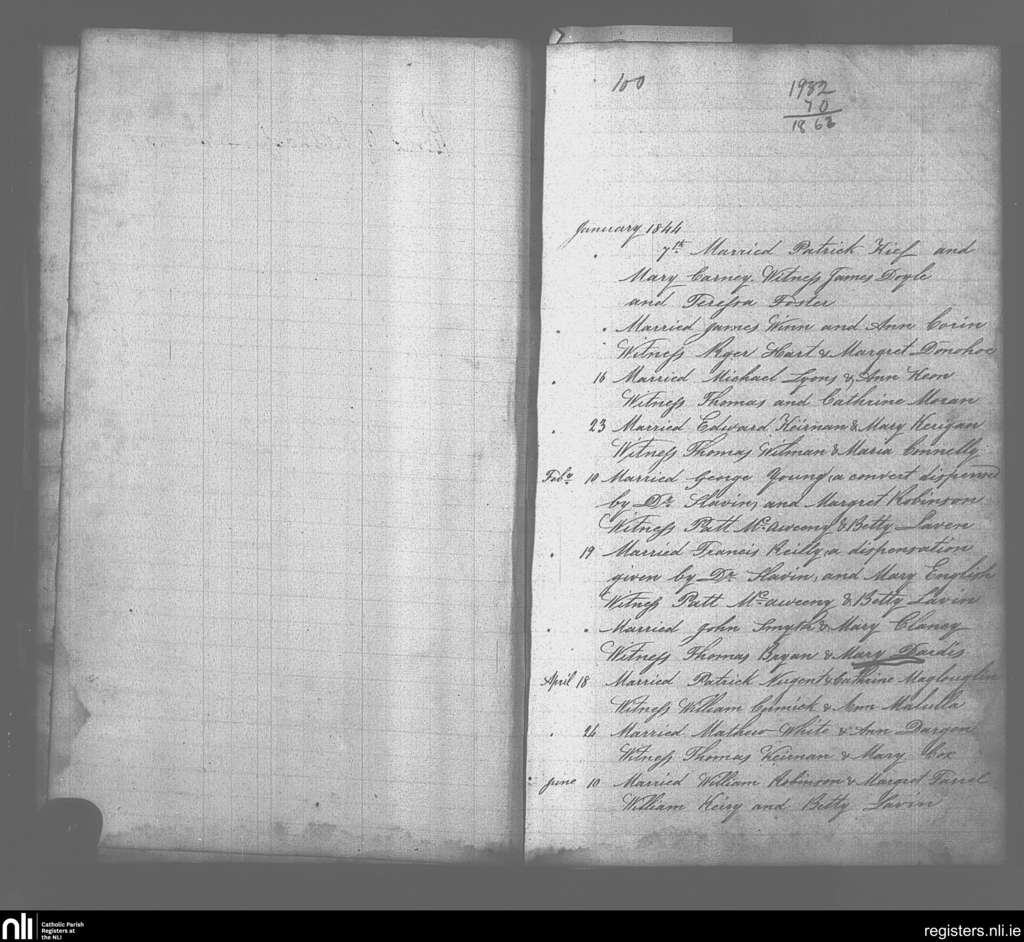 100
1932
70
1862
January 1844
7th Married Patrick Kief and
Mary Carney. Witness James Doyle
and Teressa Foster
Married James Winn and Ann Corin
Witness Roger Hart & Margret Donohoe
16 Married Michael Lyons & Ann Keon
Witness Thomas and Cathrine Moran
23 Married Edward Keirnan & Mary Kerigan
Witness Thomas Witman & Maria Connelly
Feby 10 Married George Young, a convert dispensed
by Dr. Slavin, and Margret Robinson
Witness Patt Mc.aweeny & Betty Laven
19 Married Francis Reilly, a dispensation
given by Dr. Slavin, and Mary English
Witness Patt Mc.aweeny & Betty Lavin
Married John Smyth & Mary Clancy
Witness Thomas Bryan & Mary Dardis
April 18 Married Patrick Nugent & Cathrine Maglouglin
Witness William Cormick & Ann Malulla
24 Married Mathew White & Ann Dargon
Witness Thomas Keirnan & Mary Cox
June 10 Married William Robinson & Margret Farrel
William Keiry and Betty Lavin
nli
Catholic Parish
Registers at
the NLI
registers.nli.ie